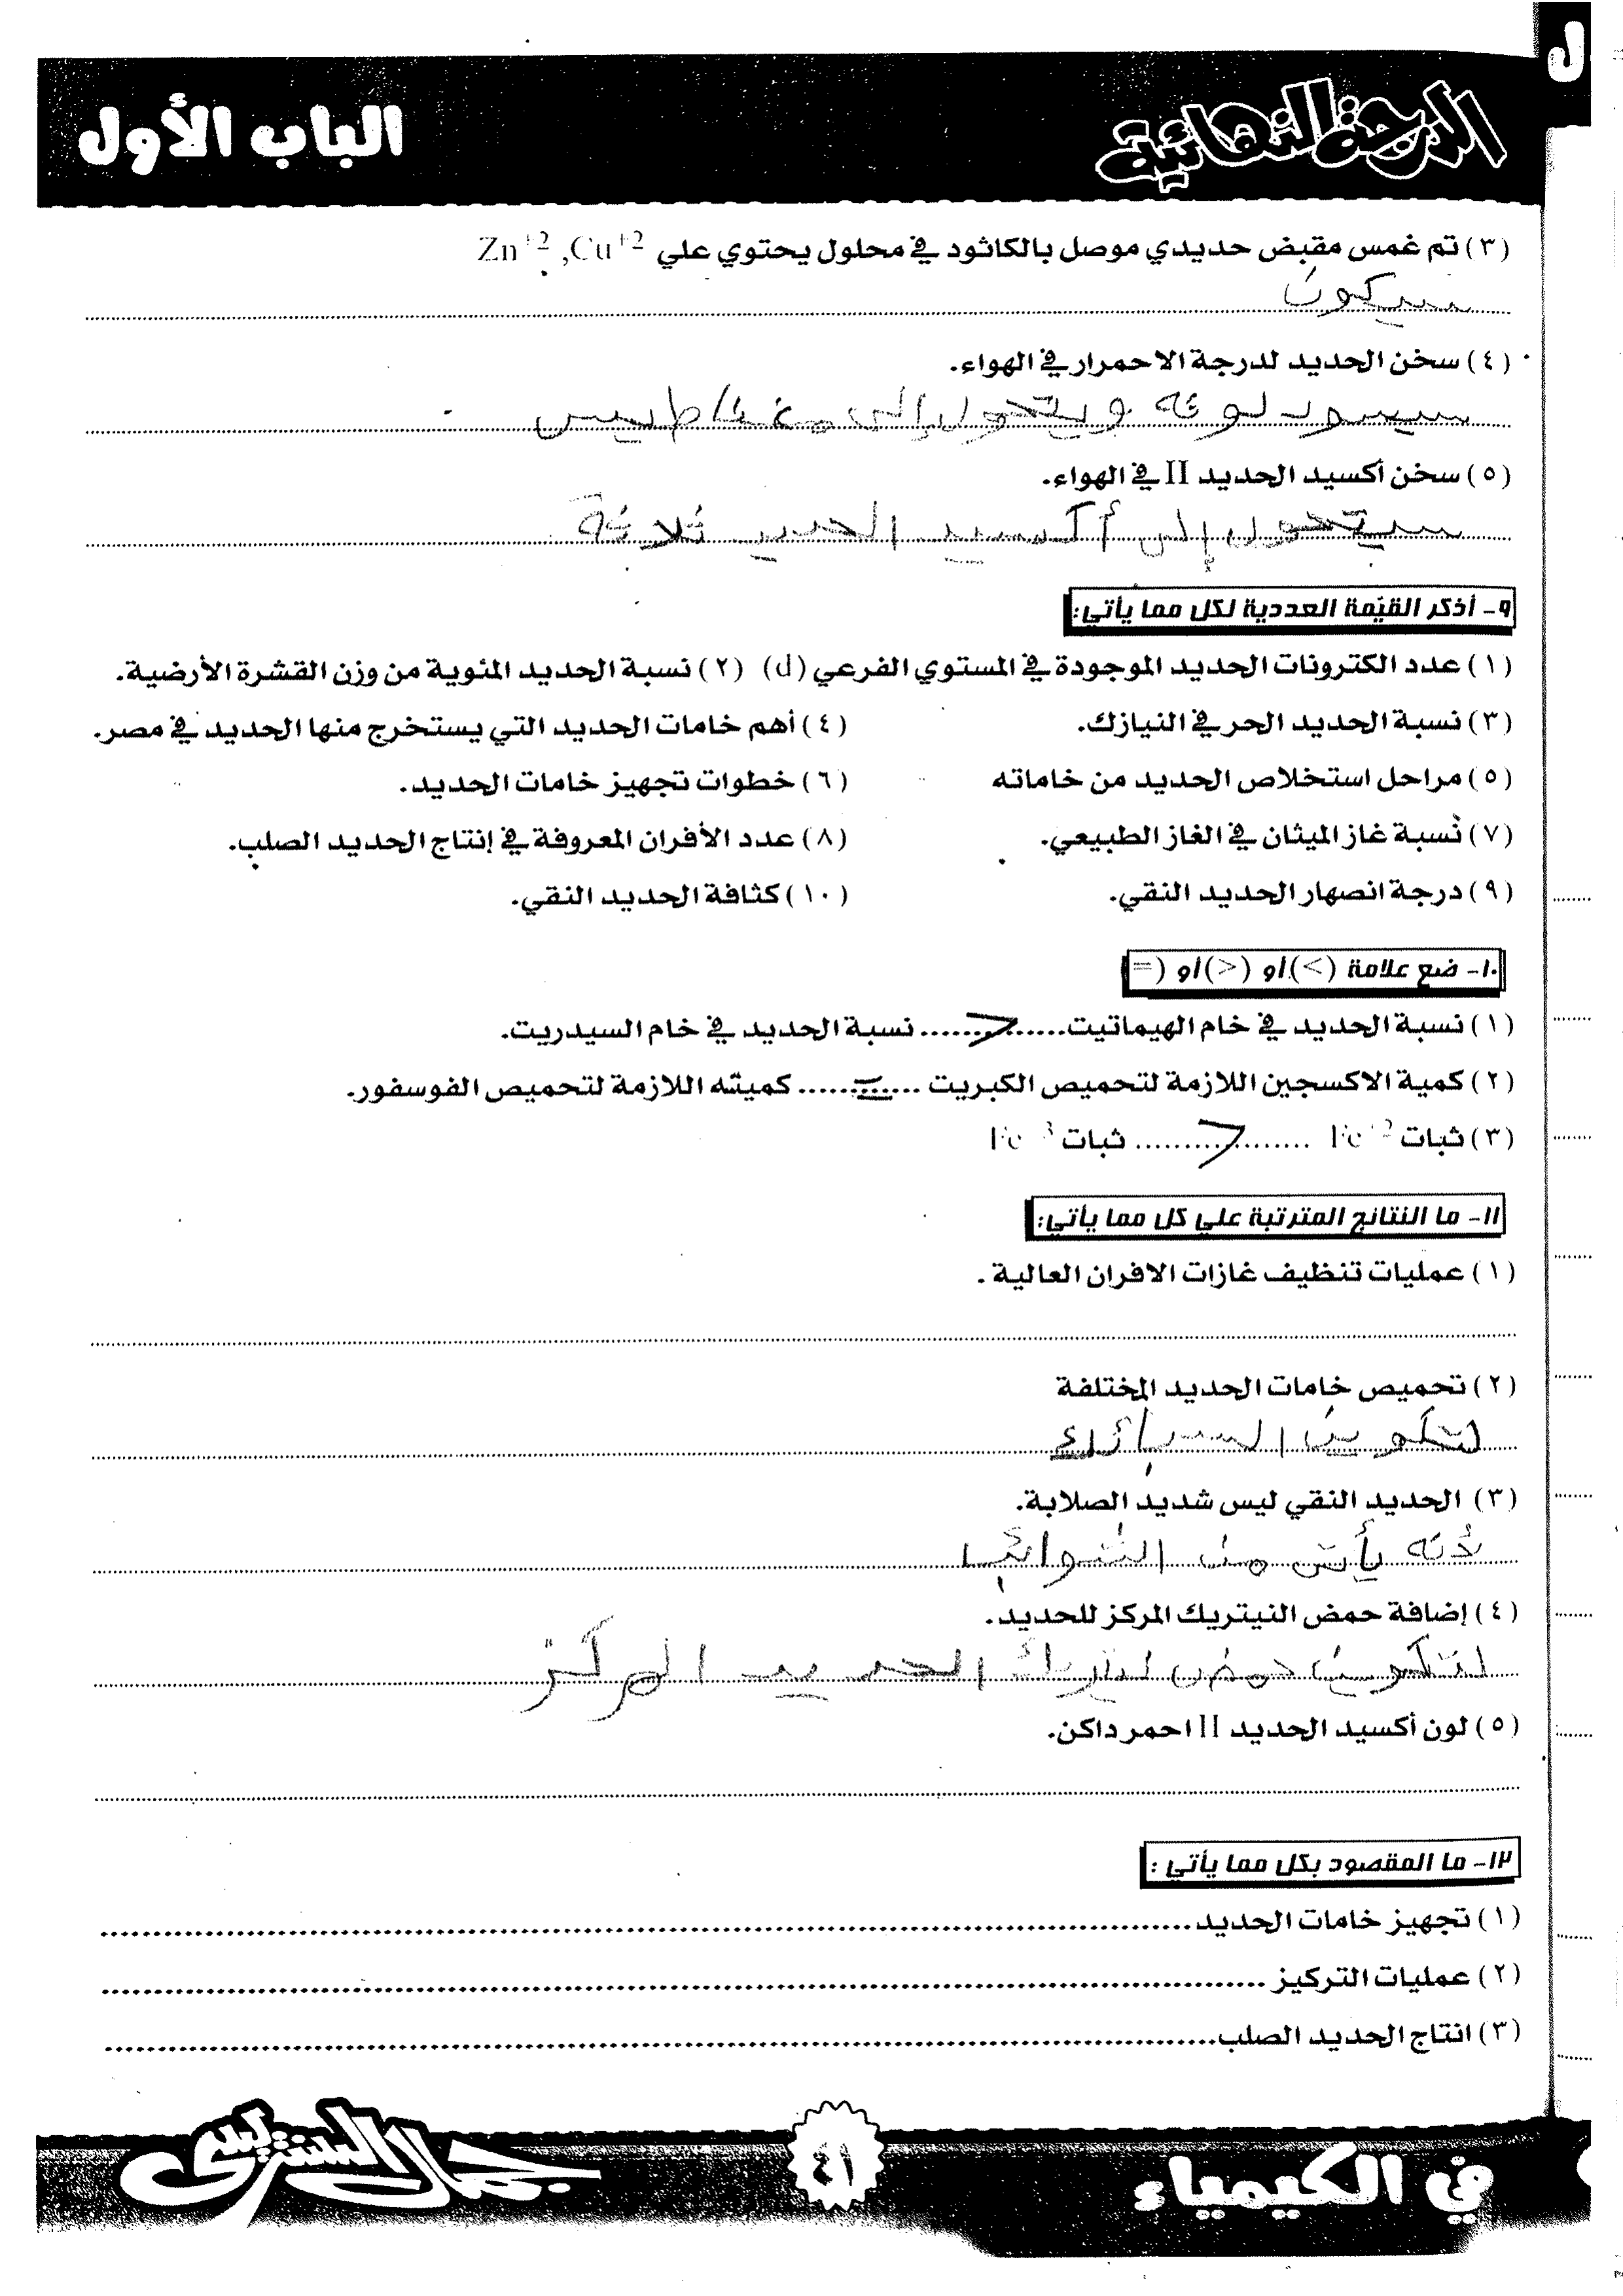 ل
الدرجة النهائية
الباب الأول
(٣) تم غمس مقبض حديدي موصل بالكاثود في محلول يحتوي علي Zn+2 ,Cu+2
سيكون
(٤) سخن الحديد لدرجة الاحمرار في الهواء.
سيسود لونه ويتحول إلى مغناطيس
(٥) سخن أكسيد الحديد II في الهواء.
سيتحول إلى أكسيد الحديد ثلاثة
٩- أذكر القيّمة العددية لكل مما يأتي:
(١) عدد الكترونات الحديد الموجودة في المستوي الفرعي (d) (٢) نسبة الحديد المئوية من وزن القشرة الأرضية.
(٣) نسبة الحديد الحر في النيازك. (٤) أهم خامات الحديد التي يستخرج منها الحديد في مصر.
(٥) مراحل استخلاص الحديد من خاماته (٦) خطوات تجهيز خامات الحديد.
(٧) نسبة غاز الميثان في الغاز الطبيعي. (٨) عدد الأفران المعروفة في إنتاج الحديد الصلب.
(٩) درجة انصهار الحديد النقي. (١٠) كثافة الحديد النقي.
١٠- ضع علامة (>) أو (<) أو (=
(١) نسبة الحديد في خام الهيماتيت.....>...... نسبة الحديد في خام السيدريت.
(٢) كمية الاكسجين اللازمة لتحميص الكبريت ....=...... كميته اللازمة لتحميص الفوسفور.
(٣) ثبات Fe+2 .......>....... ثبات Fe+3
١١- ما النتائج المترتبة علي كل مما يأتي:
(١) عمليات تنظيف غازات الافران العالية .
(٢) تحميص خامات الحديد المختلفة
لتكوين السبائك
(٣) الحديد النقي ليس شديد الصلابة.
لأنه يأتى من الشوائب
(٤) إضافة حمض النيتريك المركز للحديد.
لتكوين حمض نيتريك الحديد المركز
(٥) لون أكسيد الحديد II احمر داكن.
١٢- ما المقصود بكل مما يأتي :
(١) تجهيز خامات الحديد
(٢) عمليات التركيز
(٣) انتاج الحديد الصلب
في الكيمياء
٤١
جمال السنتريسى